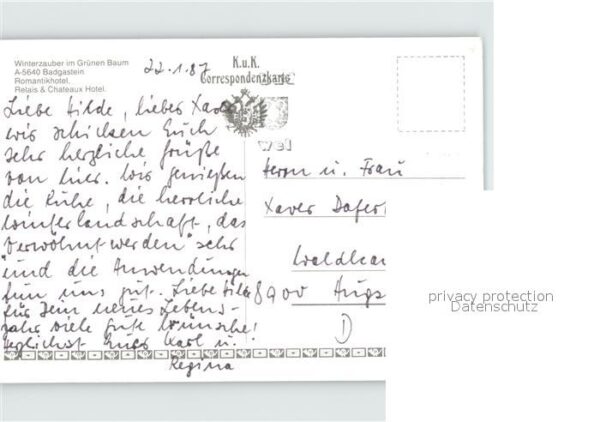 Winterzauber im Grünen Baum
A-5640 Badgastein
Romantikhotel,
Relais & Chateaux Hotel.
22.1.87
K.u.K.
Correspondenzkarte
Liebe Hilde, lieber Xaver
wir schicken Euch
sehr herzliche Grüße
von hier. Wir genießen
die Ruhe, die herrliche
Winterlandschaft, das
"Verwöhnt werden" sehr
und die Anwendungen
tun uns gut. Liebe Hilde
für Dein neues Lebens-
jahr viele gute Wünsche!
Herzlichst Eure Karl u.
Regina
Herrn u. Frau
Xaver
8900 Augs
D
privacy protection
Datenschutz